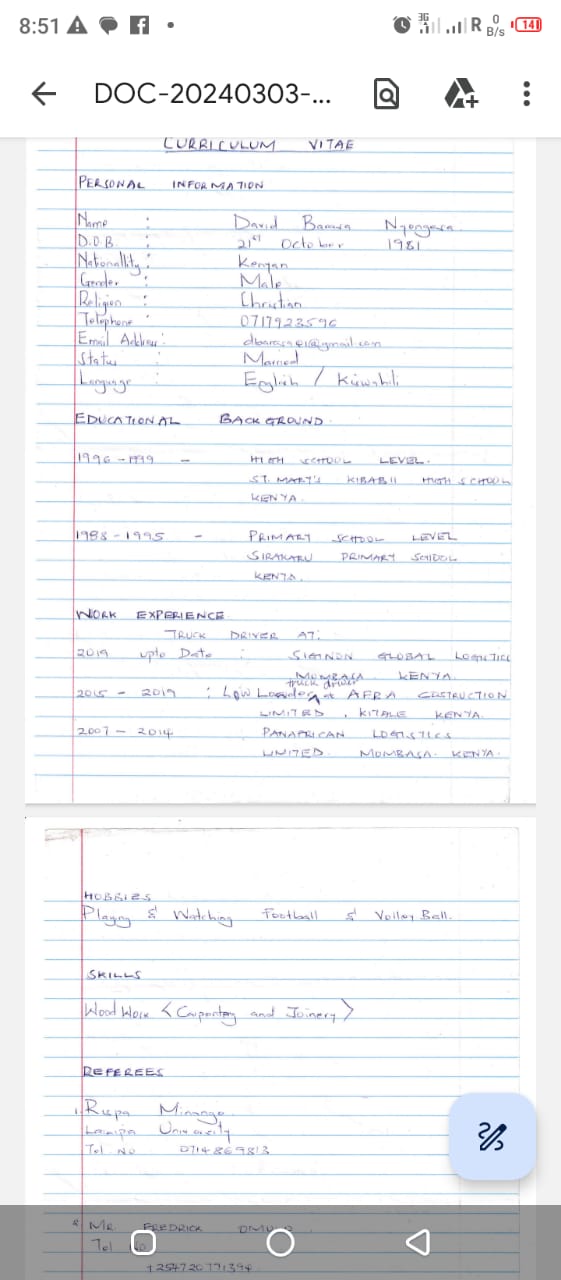 8:51
3G
R
0
B/s
14
DOC-20240303-...
CURRICULUM VITAE
PERSONAL INFORMATION
Name : David Barasa
D.O.B : 21st October 1981
Nationallity : Kenyan
Gender : Male
Religion : Christian
Telephone : 0717923596
Email Address :
Status : Married
Language : English / Kiswahili
EDUCATIONAL BACKGROUND
1996 - 1999 - HIGH SCHOOL LEVEL.
ST. MARY'S KIBABII HIGH SCHOOL
KENYA.
1988 - 1995 - PRIMARY SCHOOL LEVEL
PRIMARY SCHOOL
KENYA.
WORK EXPERIENCE
TRUCK DRIVER AT:
2019 upto Date : SIGNON GLOBAL LOGISTICS
MOMBASA KENYA.
truck driver
2015 - 2019 : Low Loader at AFRA COSTRUCTION
LIMITED, KITALE KENYA.
2007 - 2014 PANAFRICAN LOGISTICS
LIMITED. MOMBASA. KENYA.
HOBBIES
Playing & Watching Football & Volley Ball.
SKILLS
Wood Work < Carpentry and Joinery >
REFEREES
1. Rupa
University
Tel. No 0714869813
2. MR. FREDRICK
Tel No
+254720771394